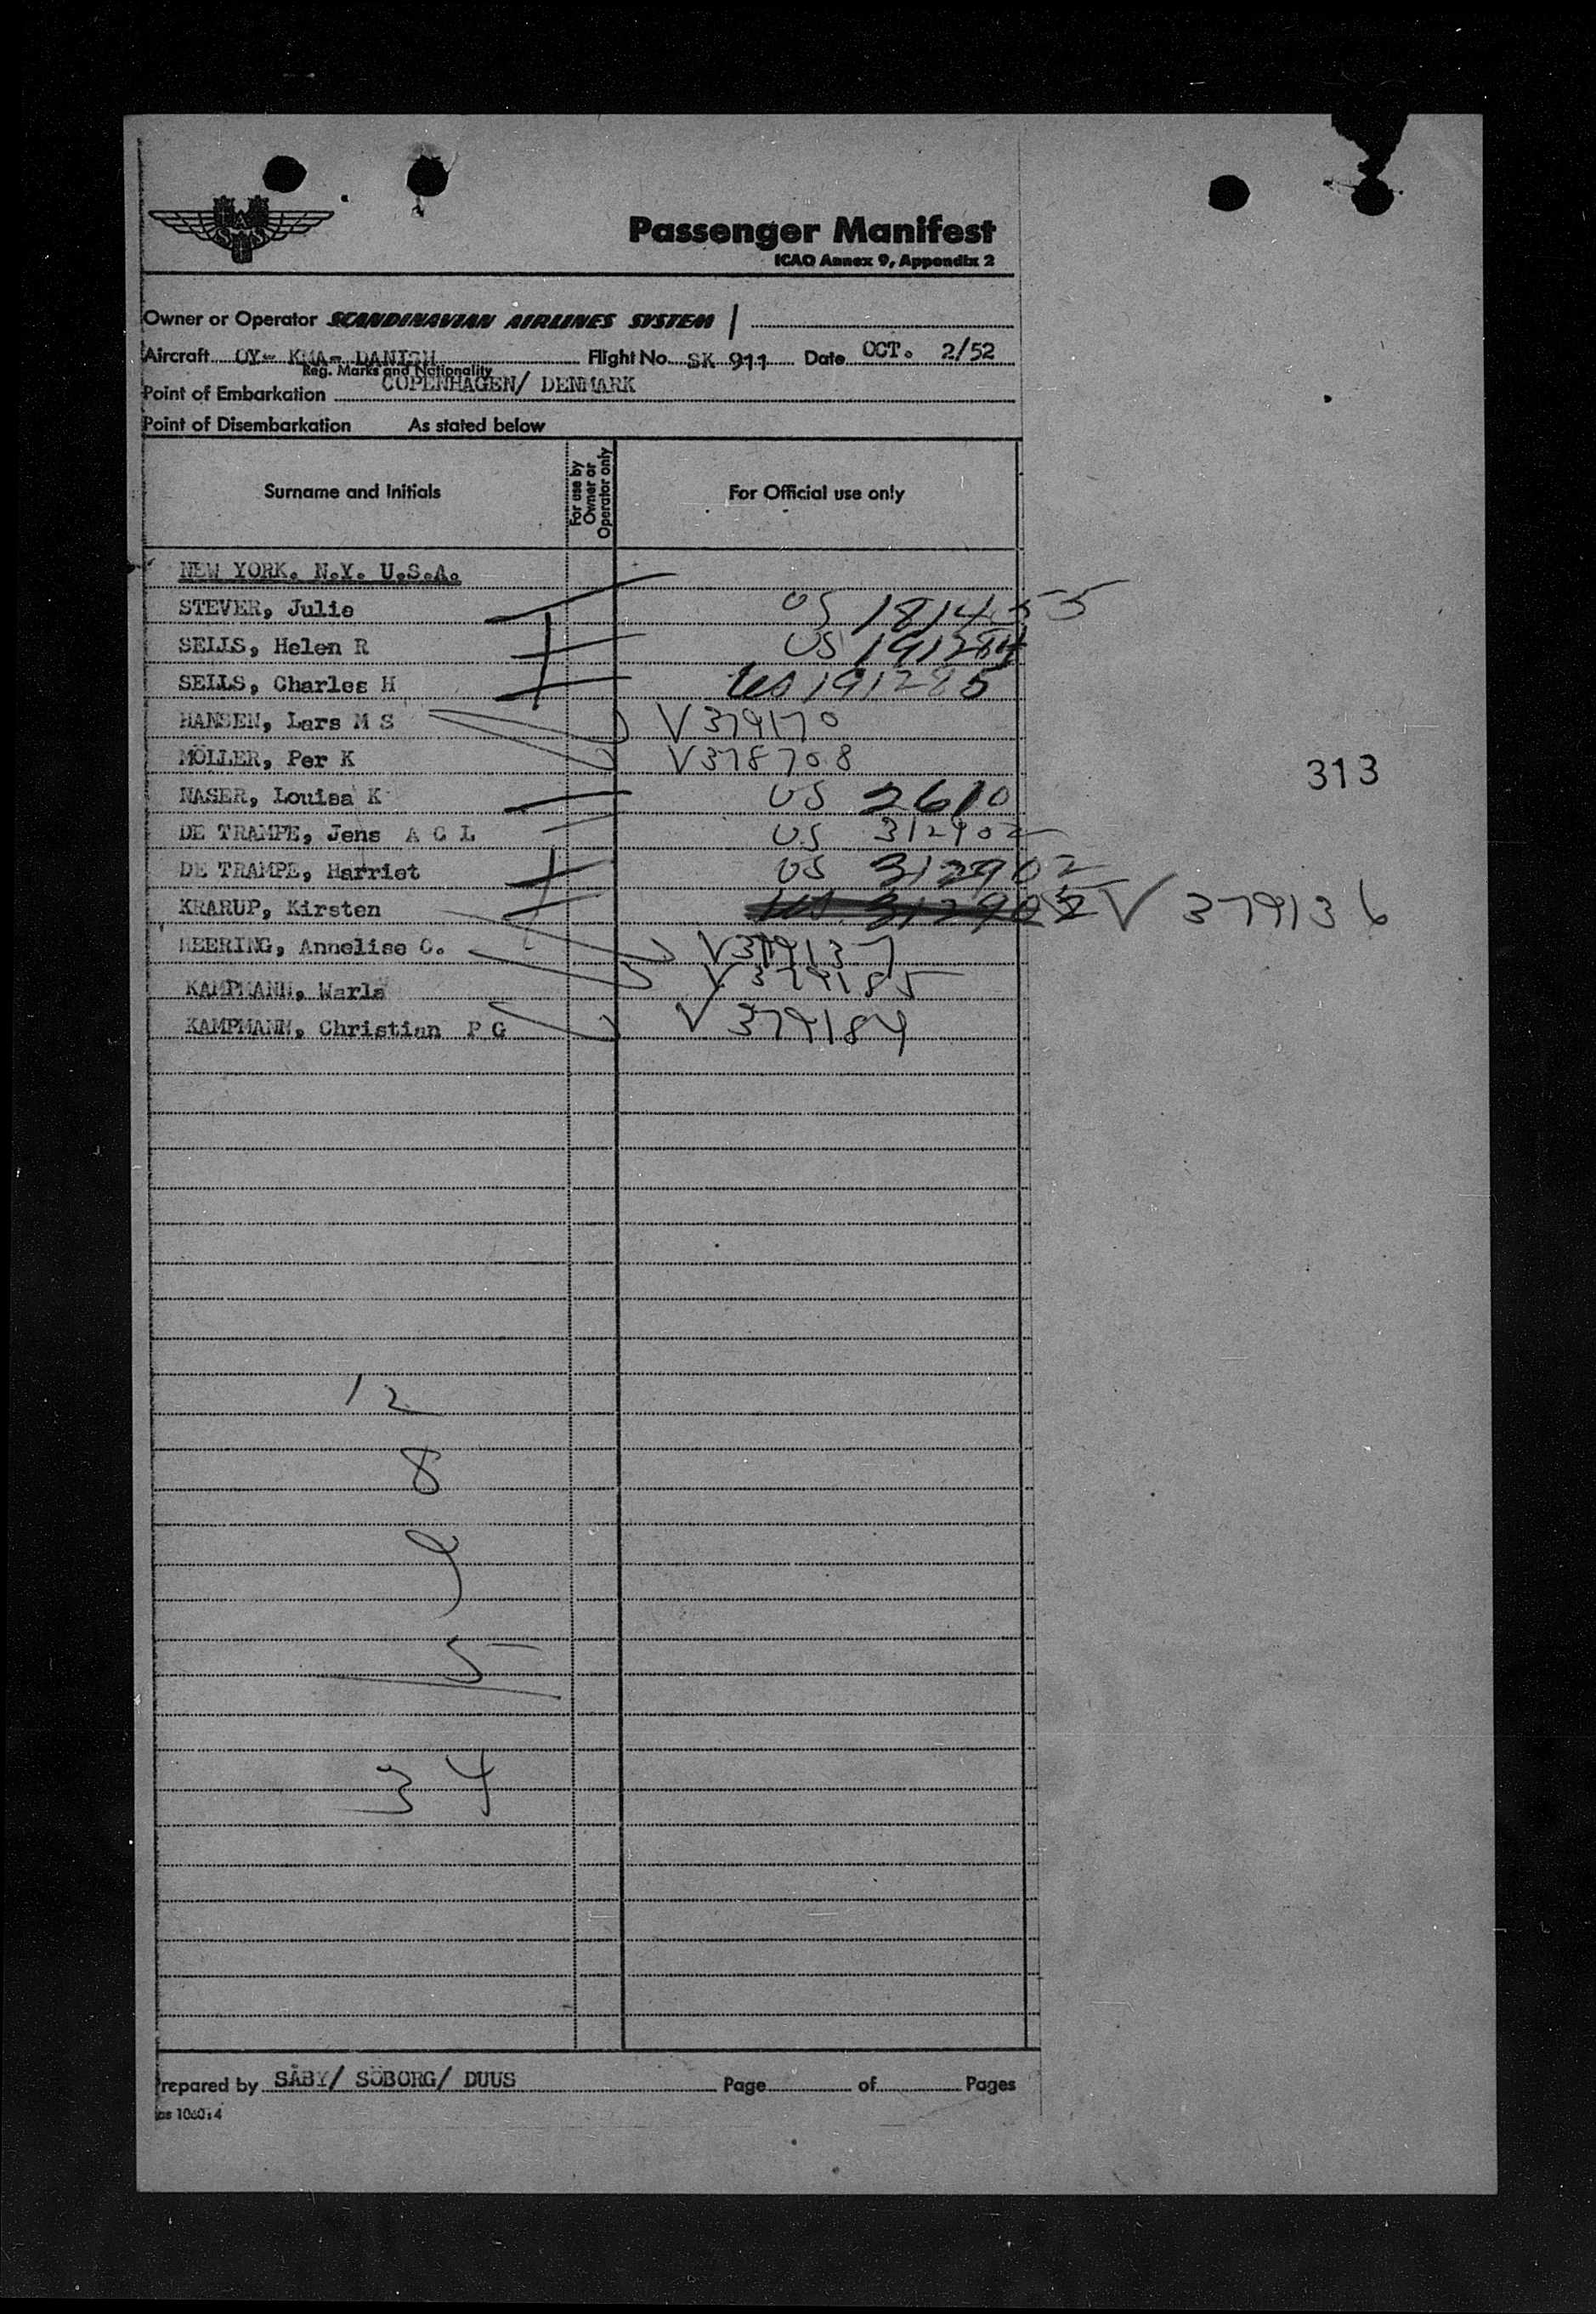 Passenger Manifest
ICAO Annex 9, Appendix 2
Owner or Operator SCANDINAVIAN AIRLINES SYSTEM
Aircraft OY- KMA- DANISH Flight No. SK 911 Date OCT. 2/52
Reg. Marks and Nationality
Point of Embarkation COPENHAGEN/ DENMARK
Point of Disembarkation As stated below
Surname and Initials For use by Owner or Operator only For Official use only
NEW YORK. N.Y. U.S.A.
STEVER, Julie US 181455
SELLS, Helen R US 191284
SELLS, Charles H US 191285
HANSEN, Lars M S V 379170
MÖLLER, Per K V 378708
313
NASER, Louisa K US 2610
DE TRAMPE, Jens A C L US 312902
DE TRAMPE, Harriet US 312902
KRARUP, Kirsten US 312902 V 379136
HEERING, Annelise C. V 379137
KAMPMANN, Warla V 379185
KAMPMANN, Christian P G V 379184
12
8
9
5
34
Prepared by SÅBY/ SÖBORG/ DUUS Page of Pages